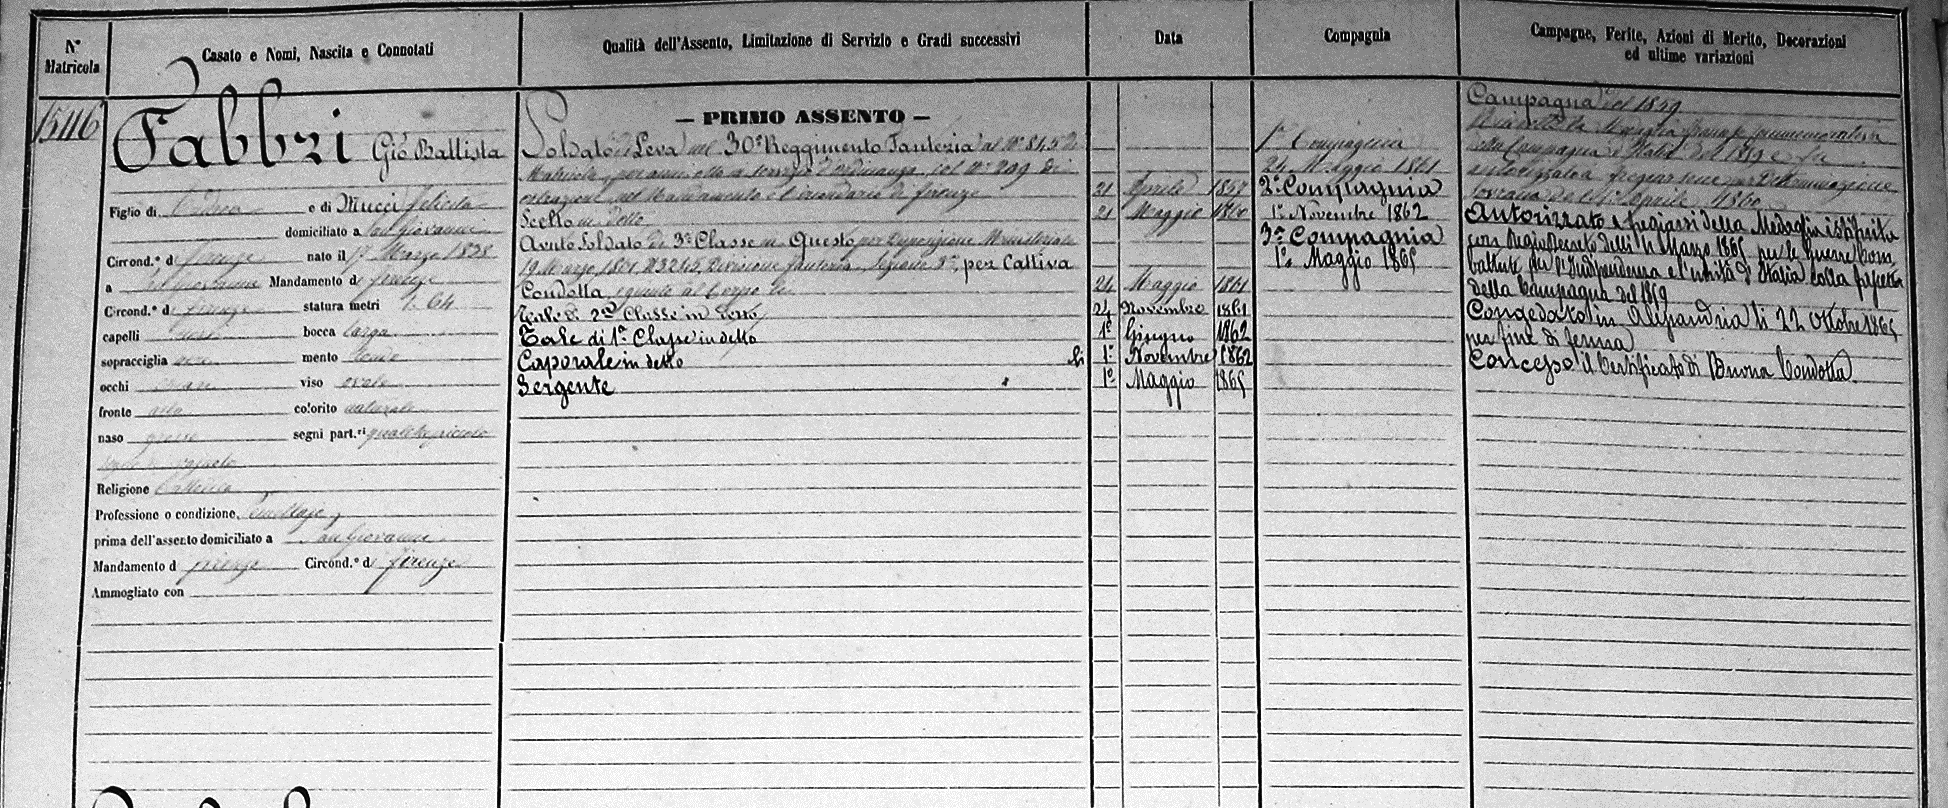 N° Matricola
Casato e Nomi, Nascita e Connotati
Qualità dell'Assento, Limitazione di Servizio e Gradi successivi
Data
Compagnia
Campagne, Ferite, Azioni di Merito, Decorazioni
ed ultime variazioni
15116
Fabbri Gio Battista
Figlio di Andrea e di Mucci Felicita
domiciliato a San Giovanni
Circond.° di Firenze nato il 17 Marzo 1838
a San Giovanni Mandamento di Firenze
Circond.° di Firenze statura metri 1. 64
capelli neri bocca larga
sopracciglia nere mento tondo
occhi viso ovale
fronte alta colorito naturale
naso grosso segni part.ri qualche piccolo
segno di vajuolo
Religione Cattolica
Professione o condizione
prima dell'assento domiciliato a San Giovanni
Mandamento d Firenze Circond.° d Firenze
Ammogliato con
— PRIMO ASSENTO —
Soldato di Leva nel 30° Reggimento Fanteria al N° 845 di
Matricola per anni otto a servizio d'ordinanza, col N° 209 di
estrazione nel Mandamento e Circondario di Firenze
Scelto in detto
Avuto Soldato di 3a Classe in Questo per Dispensione Ministeriale
19 Marzo 1861 N 3245, Divisione Fanteria, Sezione 3a, per Cattiva
Condotta
Tale di 2a Classe in detto
Tale di 1a Classe in detto
Caporale in detto li
Sergente
21 Aprile
21 Maggio 1860
24 Maggio 1861
24 Novembre 1861
1° Giugno 1862
1° Novembre 1862
1° Maggio 1865
1a Compagnia
24 Maggio 1861
2a Compagnia
1° Novembre 1862
3a Compagnia
1° Maggio 1865
Campagna del 1859
Ricevette la Medaglia francese commemorativa
della Campagna d'Italia del 1859 e fu
autorizzato a fregiarsene per Determinazione
Sovrana del 1° Aprile 1860
Autorizzato a fregiarsi della Medaglia istituita
con Regio Decreto delli 4 Marzo 1865 per le guerre com
battute per l'Indipendenza e l'unità d'Italia colla fascetta
della Campagna del 1859
Congedato in Alessandria li 22 Ottobre 1865
per fine di ferma
Concesso il Certificato di Buona Condotta